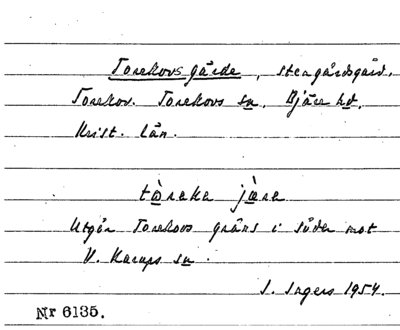 Torekovs gärde, stengärdsgård.
Torekov. Torekovs sn. Bjäre hd.
Krist. län.
tòreka jære
Utgör Torekovs gräns i söder mot
V. Karups sn.
S. Ingers 1954.
Nr 6135.